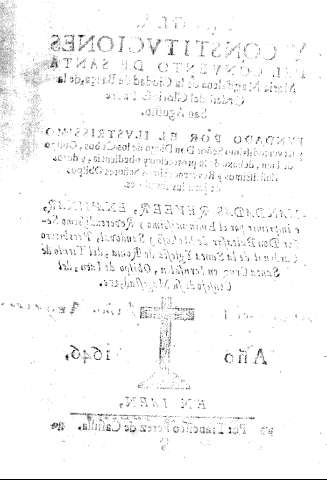 Y CONSTITVCIONES
DEL CONVENTO DE SANTA
Maria Magdalena de la Ciudad de Baeça, de la
Orden del Padre
San Agustin.
FVNDADO POR EL ILVSTRISSIMO
y reverendissimo Señor Don Diego de los Cobos, Obispo
de Iaen, debaxo de la proteccion y obediencia, y de sus
Illustrissimos y Reverendissimos Señores Obispos
de Iaen
MANDADAS REVEER,
e imprimir por el Eminentissimo y Reverendissimo Se-
ñor Don Baltasar de Moscoso y Sandoval, Presbytero
Cardenal de la Santa Yglesia de Roma, del Titulo de
Santa Cruz en Ierusalen, Obispo de Iaen, del
Consejo de su Magestad,
Año 1646.
EN IAEN,
Por Francisco Perez de Castilla.